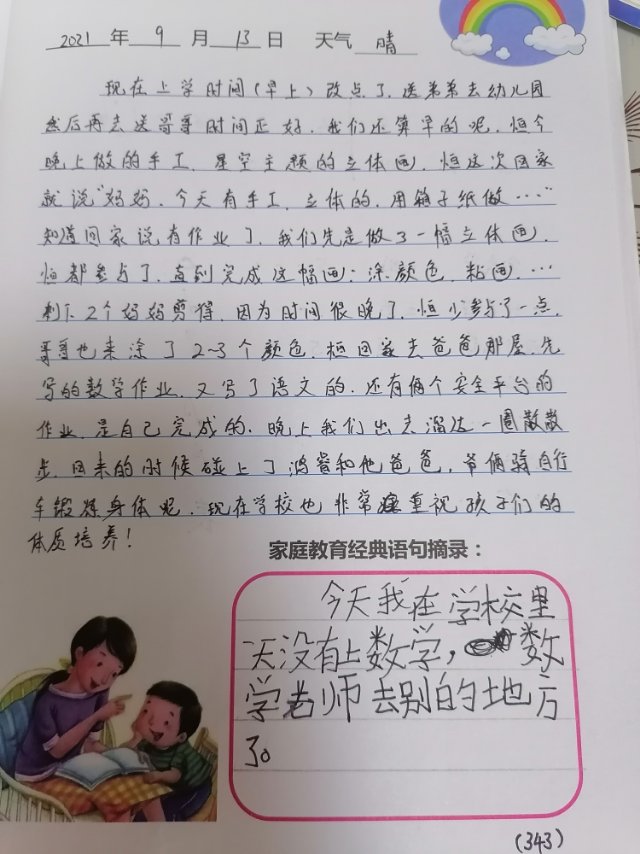 2021 年 9 月 13 日 天气 晴
现在上学时间(早上)改点了,送弟弟去幼儿园
然后再去送哥哥时间正好,我们还算早的呢,恒今
晚上做的手工,星空主题的立体画,恒这次回家
就说"妈妈,今天有手工,立体的,用箱子纸做……"
知道回家说有作业了,我们先是做了一幅立体画,
恒都参与了,直到完成这幅画:涂颜色,粘画,…
剩下2个妈妈剪得,因为时间很晚了,恒少参与了一点,
哥哥也来涂了2-3个颜色,桓回家去爸爸那屋,先
写的数学作业,又写了语文的,还有俩个安全平台的
作业,是自己完成的,晚上我们出去溜达一圈散散
步,回来的时候碰上了鸿 和他爸爸,爷俩骑自行
车锻炼身体呢,现在学校也非常重视孩子们的
体质培养!
家庭教育经典语句摘录:
今天我在学校里
一天没有上数学,数
学老师去别的地方
了。
(343)